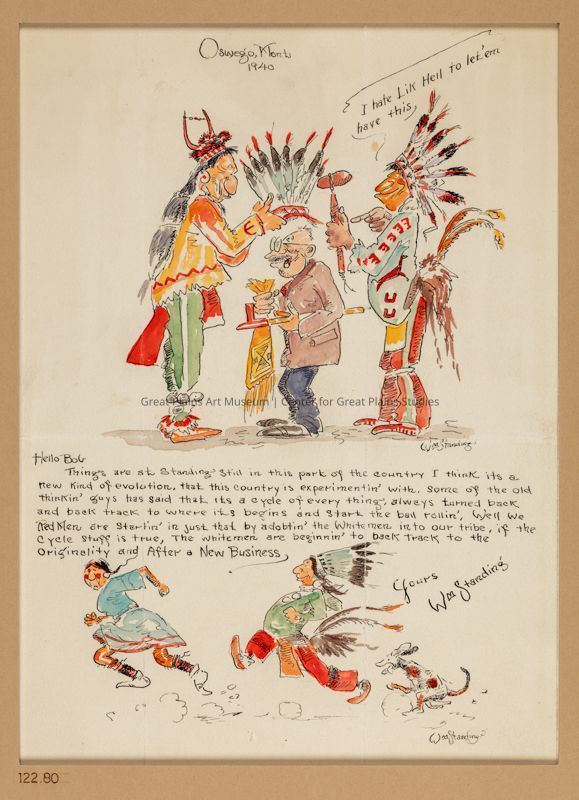 Oswego, Mont.
1940
I hate Lik Hell to let'em
have this,
Great Plains Art Museum | Center for Great Plains Studies
Wm Standing
Hello Bob
Things are at Standing Still in this part of the country I think its a
new kind of evolution, that this country is experimentin' with. Some of the old
thinkin' guys has said that its a cycle of every thing, always turned back
and back track to where its begins and start the ball rollin', Well we
Red Men are startin' in just that by adobtin' the Whitemen into our tribe, if the
Cycle Stuff is true, The whitemen are beginnin' to back track to the
Originality and After a New Business,
Yours
Wm Standing
Wm Standing
122.80